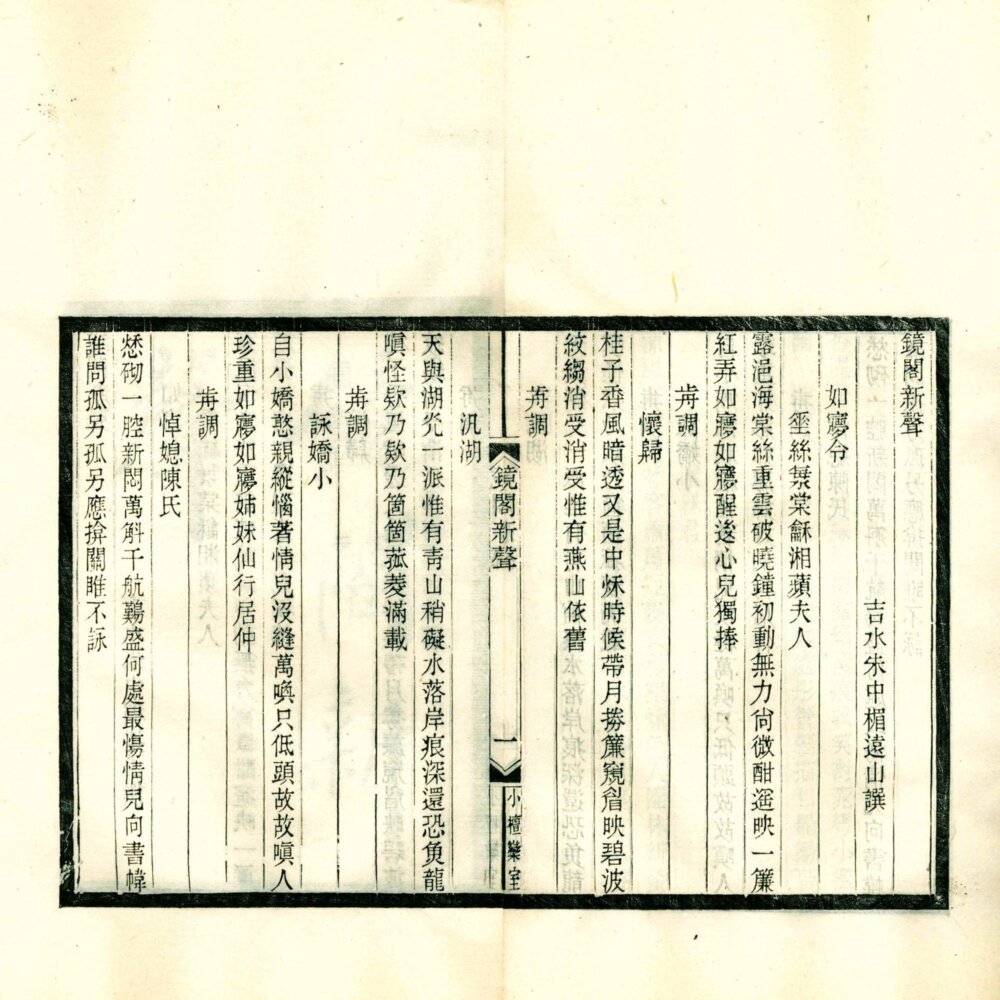 鏡閣新聲
吉水朱中楣遠山譔
如㝱令
埀絲海棠龢湘蘋夫人
露浥海棠絲重雲破曉鐘初動無力尙微酣遥映一簾
紅弄如㝱如㝱醒後心兒獨捧
歬調
懷歸
桂子香風暗透又是中秌時候帶月捲簾窺眉映碧波
紋縐消受消受惟有燕山依舊
歬調
汎湖
天與湖灮一派惟有靑山稍礙水落岸痕深還恐負龍
嗔怪欸乃欸乃箇箇菰菱滿載
歬調
詠嬌小
自小嬌憨親縱惱著情兒沒縫萬喚只低頭故故嗔人
珍重如㝱如㝱姊妹仙行居仲
歬調
悼媳陳氏
愁砌一腔新悶萬斛千航難盛何處最傷情兒向書幃
誰問孤另孤另應揜關雎不詠
鏡閣新聲
一
小檀欒室